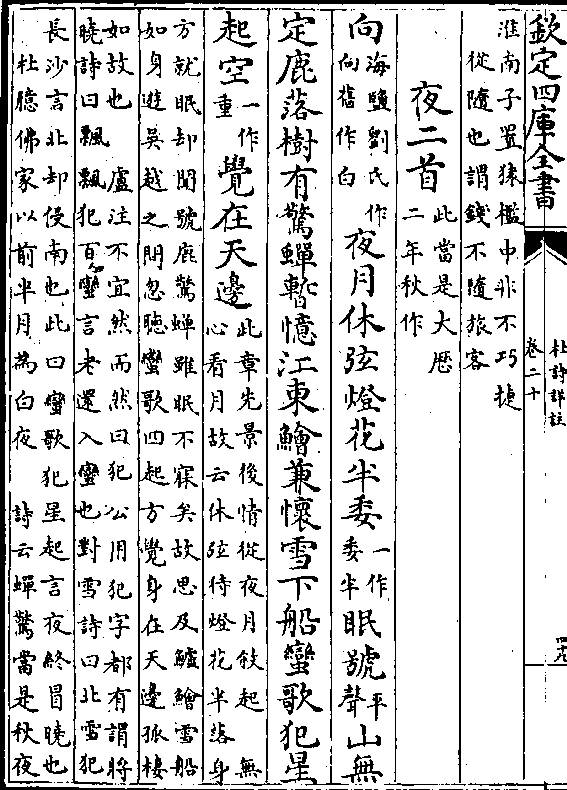 欽定四庫全書
杜詩詳註
卷二十
淮南子置猿檻中非不巧捷
從隨也謂錢不隨旅客
夜二首
此當是大厯
二年秋作
向海鹽劉氏作向舊作白夜月休弦燈花半委一作委半眠號平聲山無
定鹿落樹有驚蟬暫憶江東鱠兼懷雪下船蠻歌犯星
起空一作重覺在天邊此章先景後情從夜月敘起 無心看月故云休弦待燈花半落身
方就眠却聞號鹿驚蟬雖眠不寐矣故思及鱸鱠雪船
如身遊吳越之間忽聽蠻歌四起方覺身在天邊孤棲
如故也 盧注不宜然而然曰犯公用犯字都有謂將
曉詩曰飄飄犯百蠻言老還入蠻也對雪詩曰北雪犯
長沙言北却侵南也此曰蠻歌犯星起言夜終冒曉也
杜臆佛家以前半月為白夜 詩云蟬驚當是秋夜